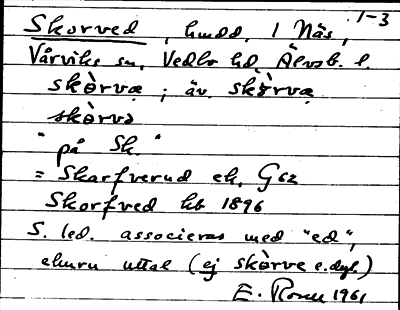 1-3
Skorved, hmdd. 1 Näs,
Vårviks sn, Vedbo hd, Älvsb. l.
skòrvæ ; äv. skòrvæ
skòrvə
"på Sk."
= Skarfverud ek. G62
Skorfved kb 1896
S. led. associeras med "ed",
ehuru uttal (ej skòrve e.dyl.)
E. 1961